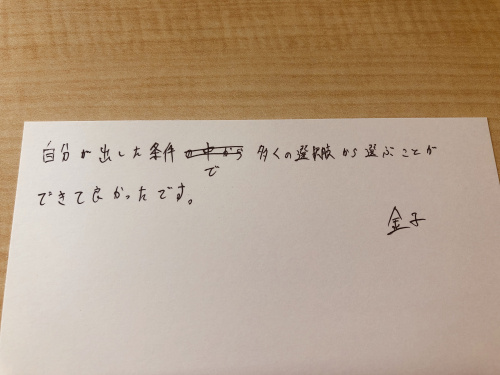 自分が出した条件で多くの選択肢から選ぶことが
できて良かったです。
金子